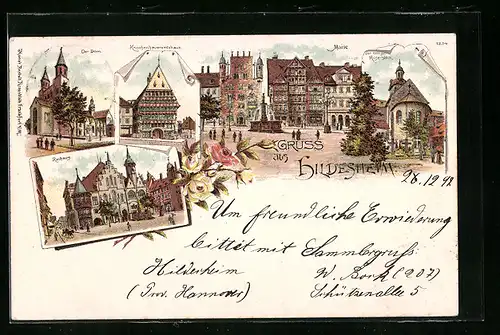 Der Dom.
Knochenhaueramtshaus.
Markt
5234
Rathaus
GRUSS
AUS
HILDESHEIM
28.12.98
Um freundliche Erwiederung
bittet mit Sammlergruss
Hildesheim W. Bock (207)
(Prov. Hannover) Schützenallee 5